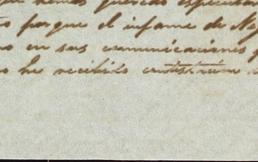 que hemos querido especular
porque el infame de
en sus comunicaciones
he recibido contestacion